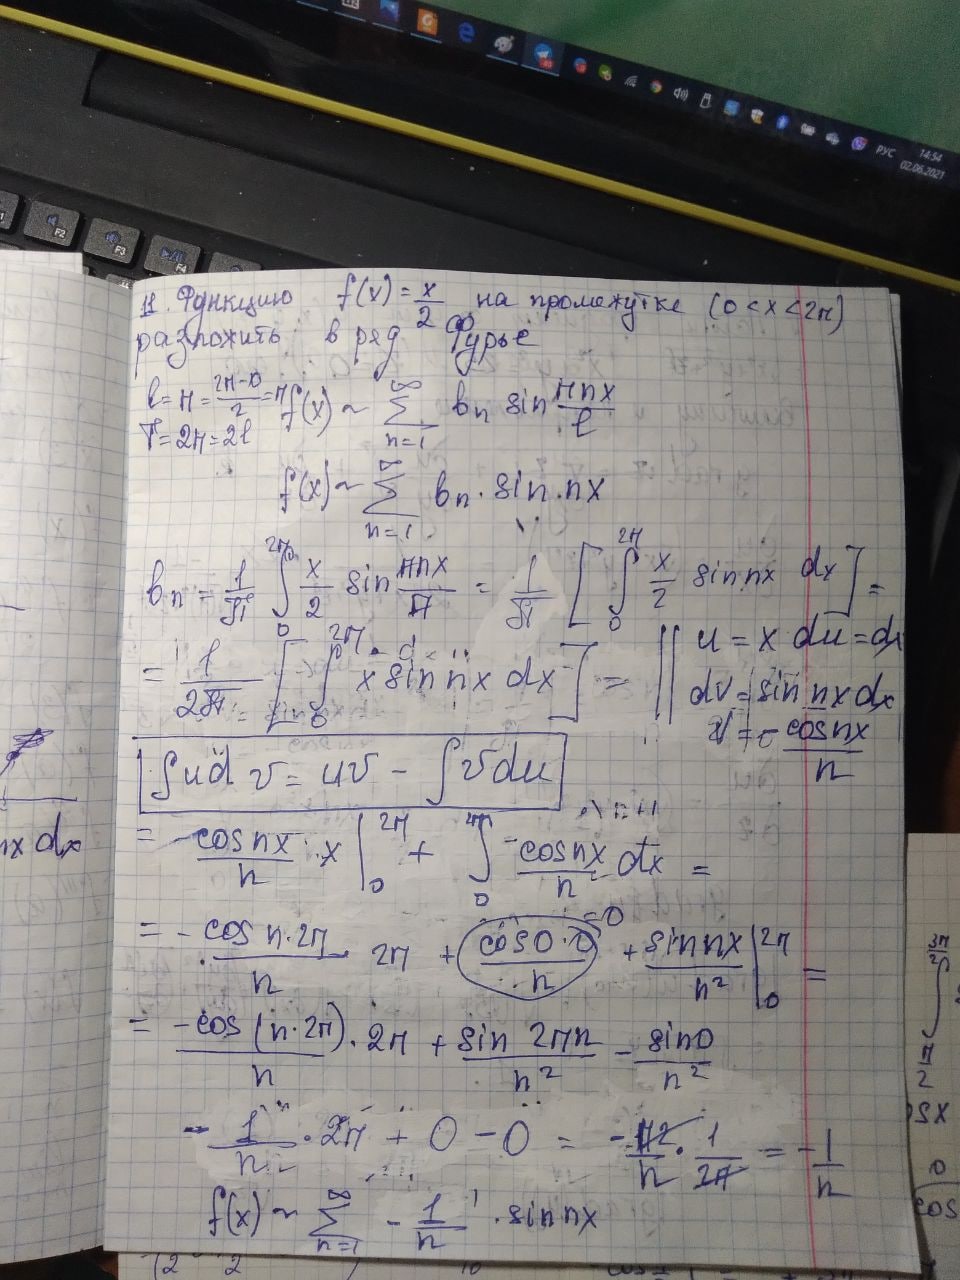 РУС
14:54
02.06.2021
F2
F3
F4
11. Функцию f(x) = x/2 на промежутке (0 < x < 2π)
разложить в ряд Фурье
l = π = (2π-0)/2 = π
T = 2π = 2l
f(x) ~ ∑_{n=1}^{∞} b_n sin πnx/l
f(x) ~ ∑_{n=1}^{∞} b_n · sin nx
b_n = 1/π ∫_0^{2π} x/2 sin πnx/π = 1/π [ ∫_0^{2π} x/2 sin nx dx ] =
= 1/2π [ ∫_0^{2π} x sin nx dx ] = || u = x du = dx
dv = sin nx dx
v = - cos nx/n
∫ u d v = uv - ∫ v du
= - cos nx/n · x |_0^{2π} + ∫_0^{2π} - cos nx/n dx =
= - cos n·2π/n 2π + cos 0·0/n =0 + sin nx/n² |_0^{2π} =
= - cos (n·2π)/n · 2π + sin 2πn/n² - sin 0/n²
- 1/n · 2π + 0 - 0 = - π2/n · 1/2π = - 1/n
f(x) ~ ∑_{n=1}^{∞} - 1/n · sin nx
nx dx
3π/2
∫
π/2
cos